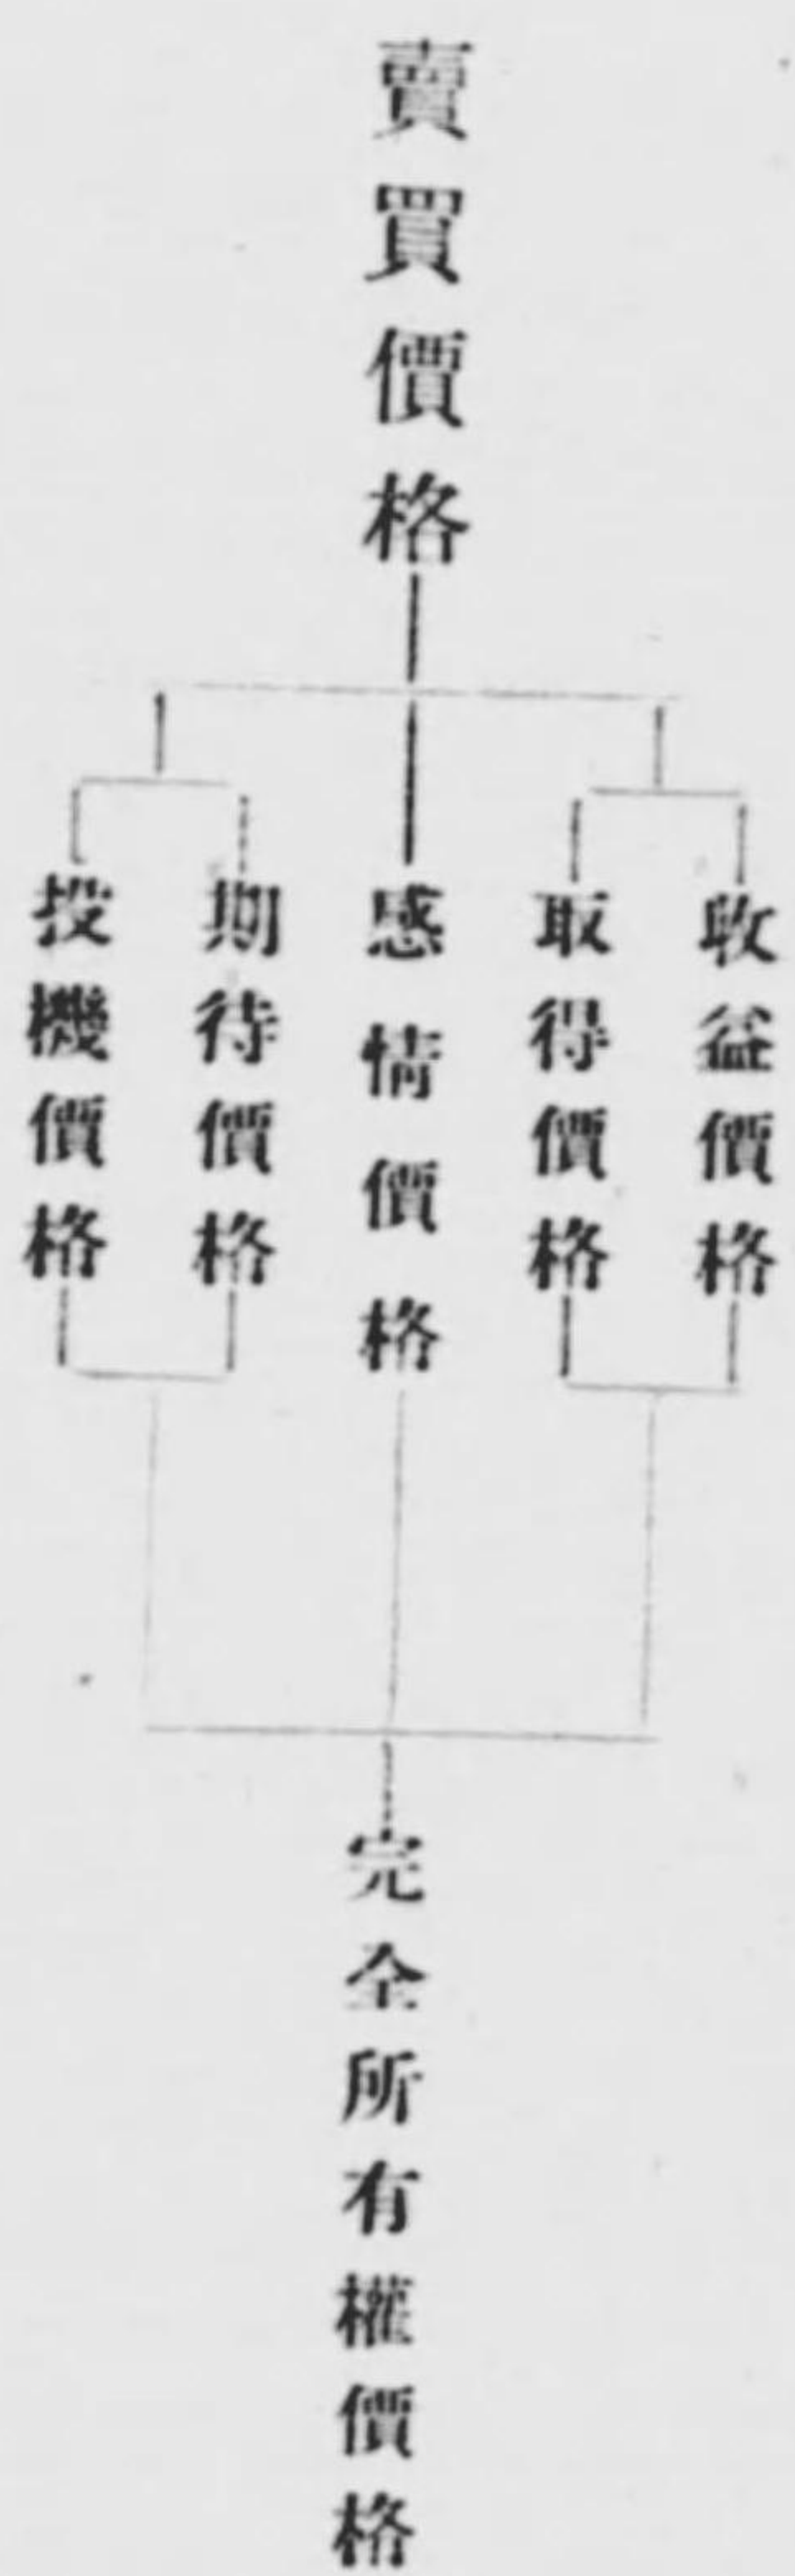 賣買價格
收益價格
取得價格
感情價格
期待價格
投機價格
完全所有權價格